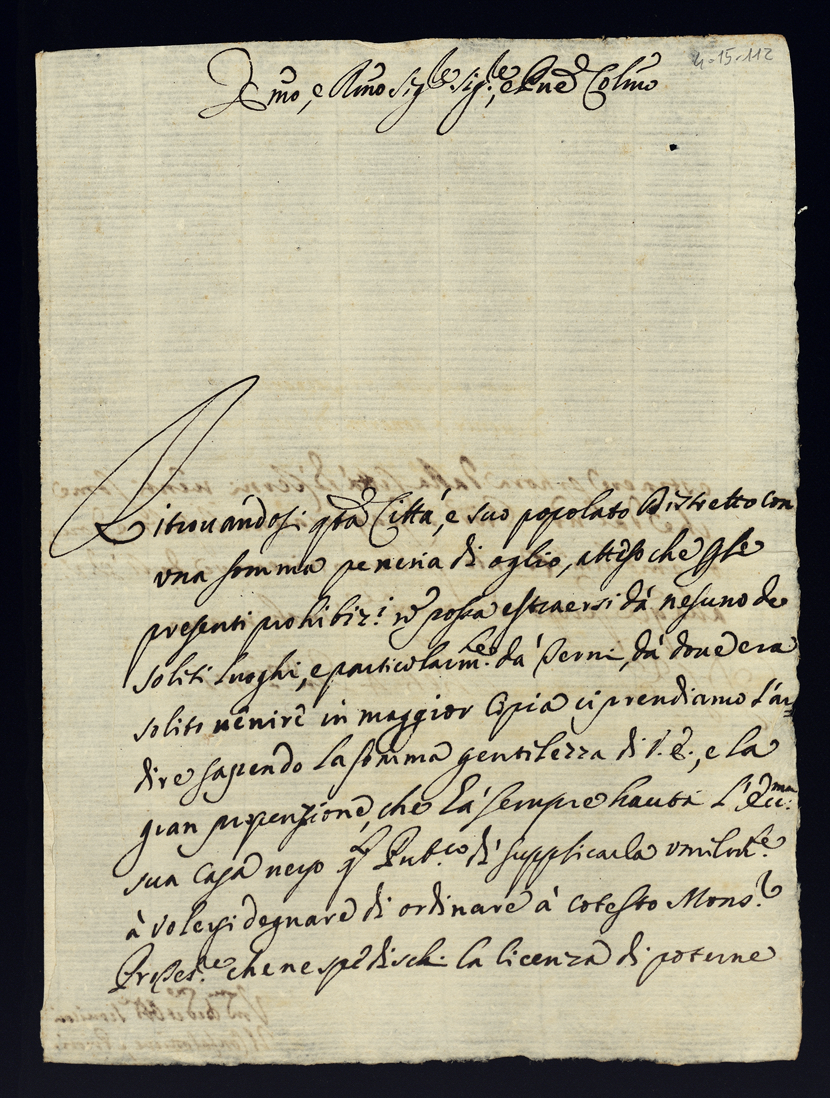 4-15-112
Emo, e Rmo Sig.re Sig.re, e Pne Colmo
Ritrouándosi qta Città, e suo popolato Distretto con
una somma penuria di oglio, atteso che p le
presenti prohibiz.i nõ possa estraersi dá nesuno de
soliti luoghi, e particolarm.te dá Terni, dá doue era
solito uenire in maggior Copia ci prendiamo l'ár=
dire sapendo la somma gentilezza di V.E., e la
gran propenzione, che há sempre hauta l'Ecc.ma
sua Casa verso q.to Pub.co di supplicarla umilm.te
à volersi degnare di ordinare á cotesto Mons.r
Presid.te che ne spedischi la licenza di poterne